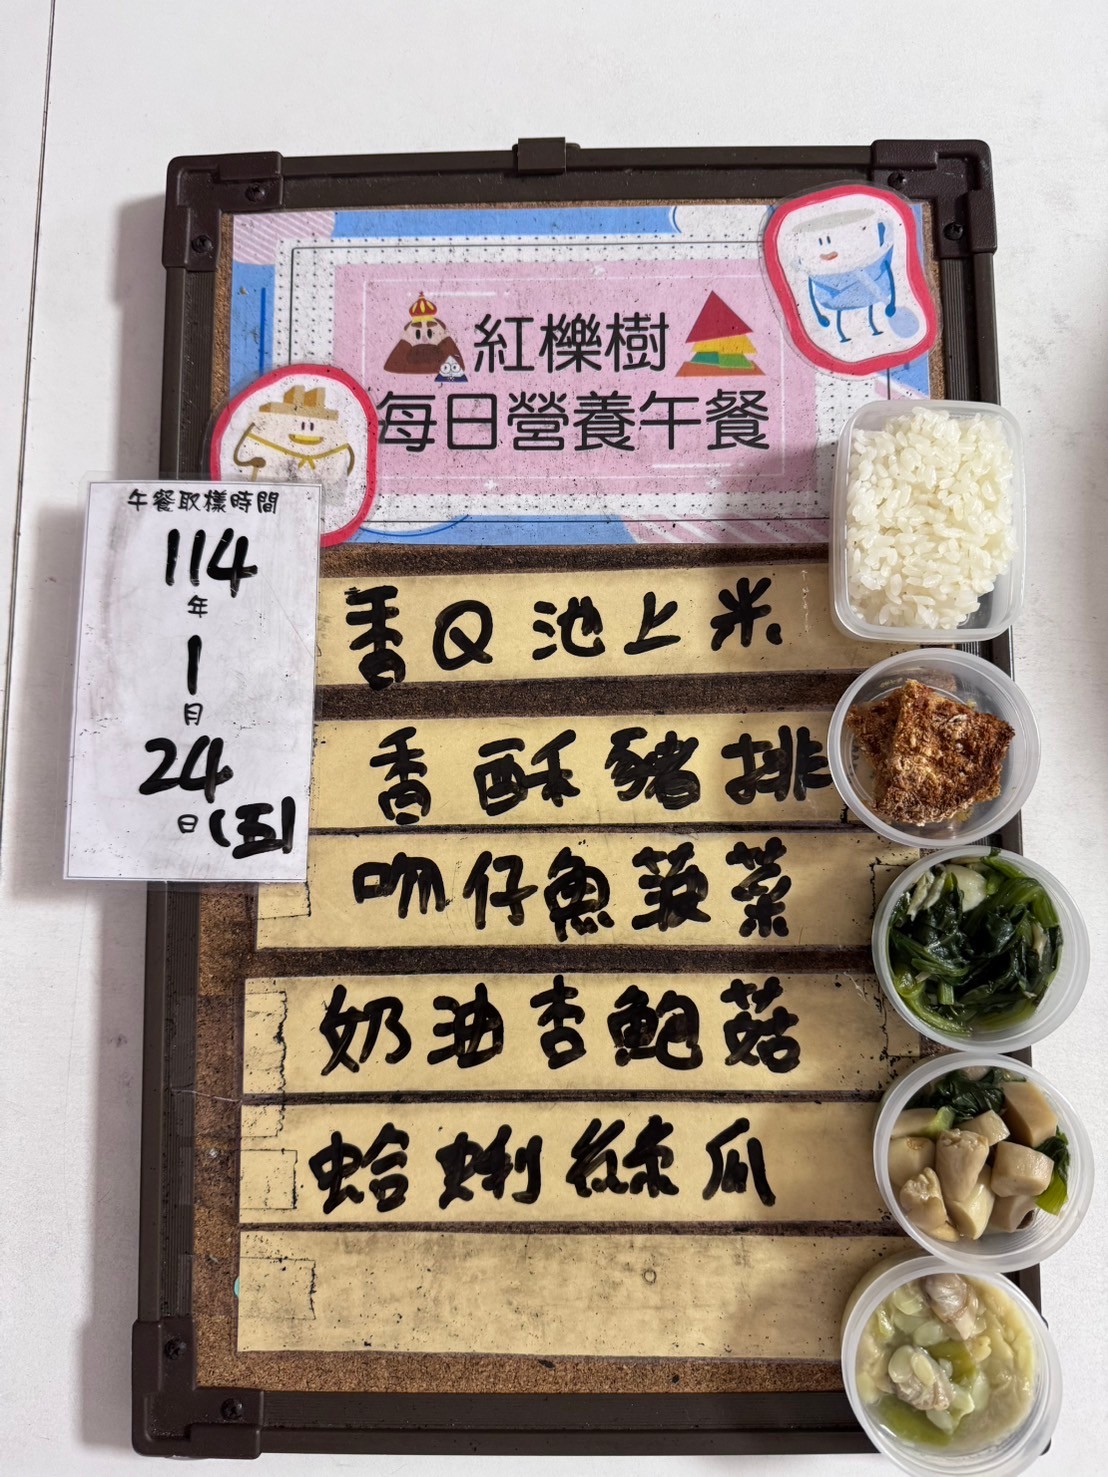 紅櫟樹
每日營養午餐
午餐取樣時間
114
年
1
月
24
日(五)
香Q池上米
香酥豬排
吻仔魚菠菜
奶油杏鮑菇
蛤蜊絲瓜